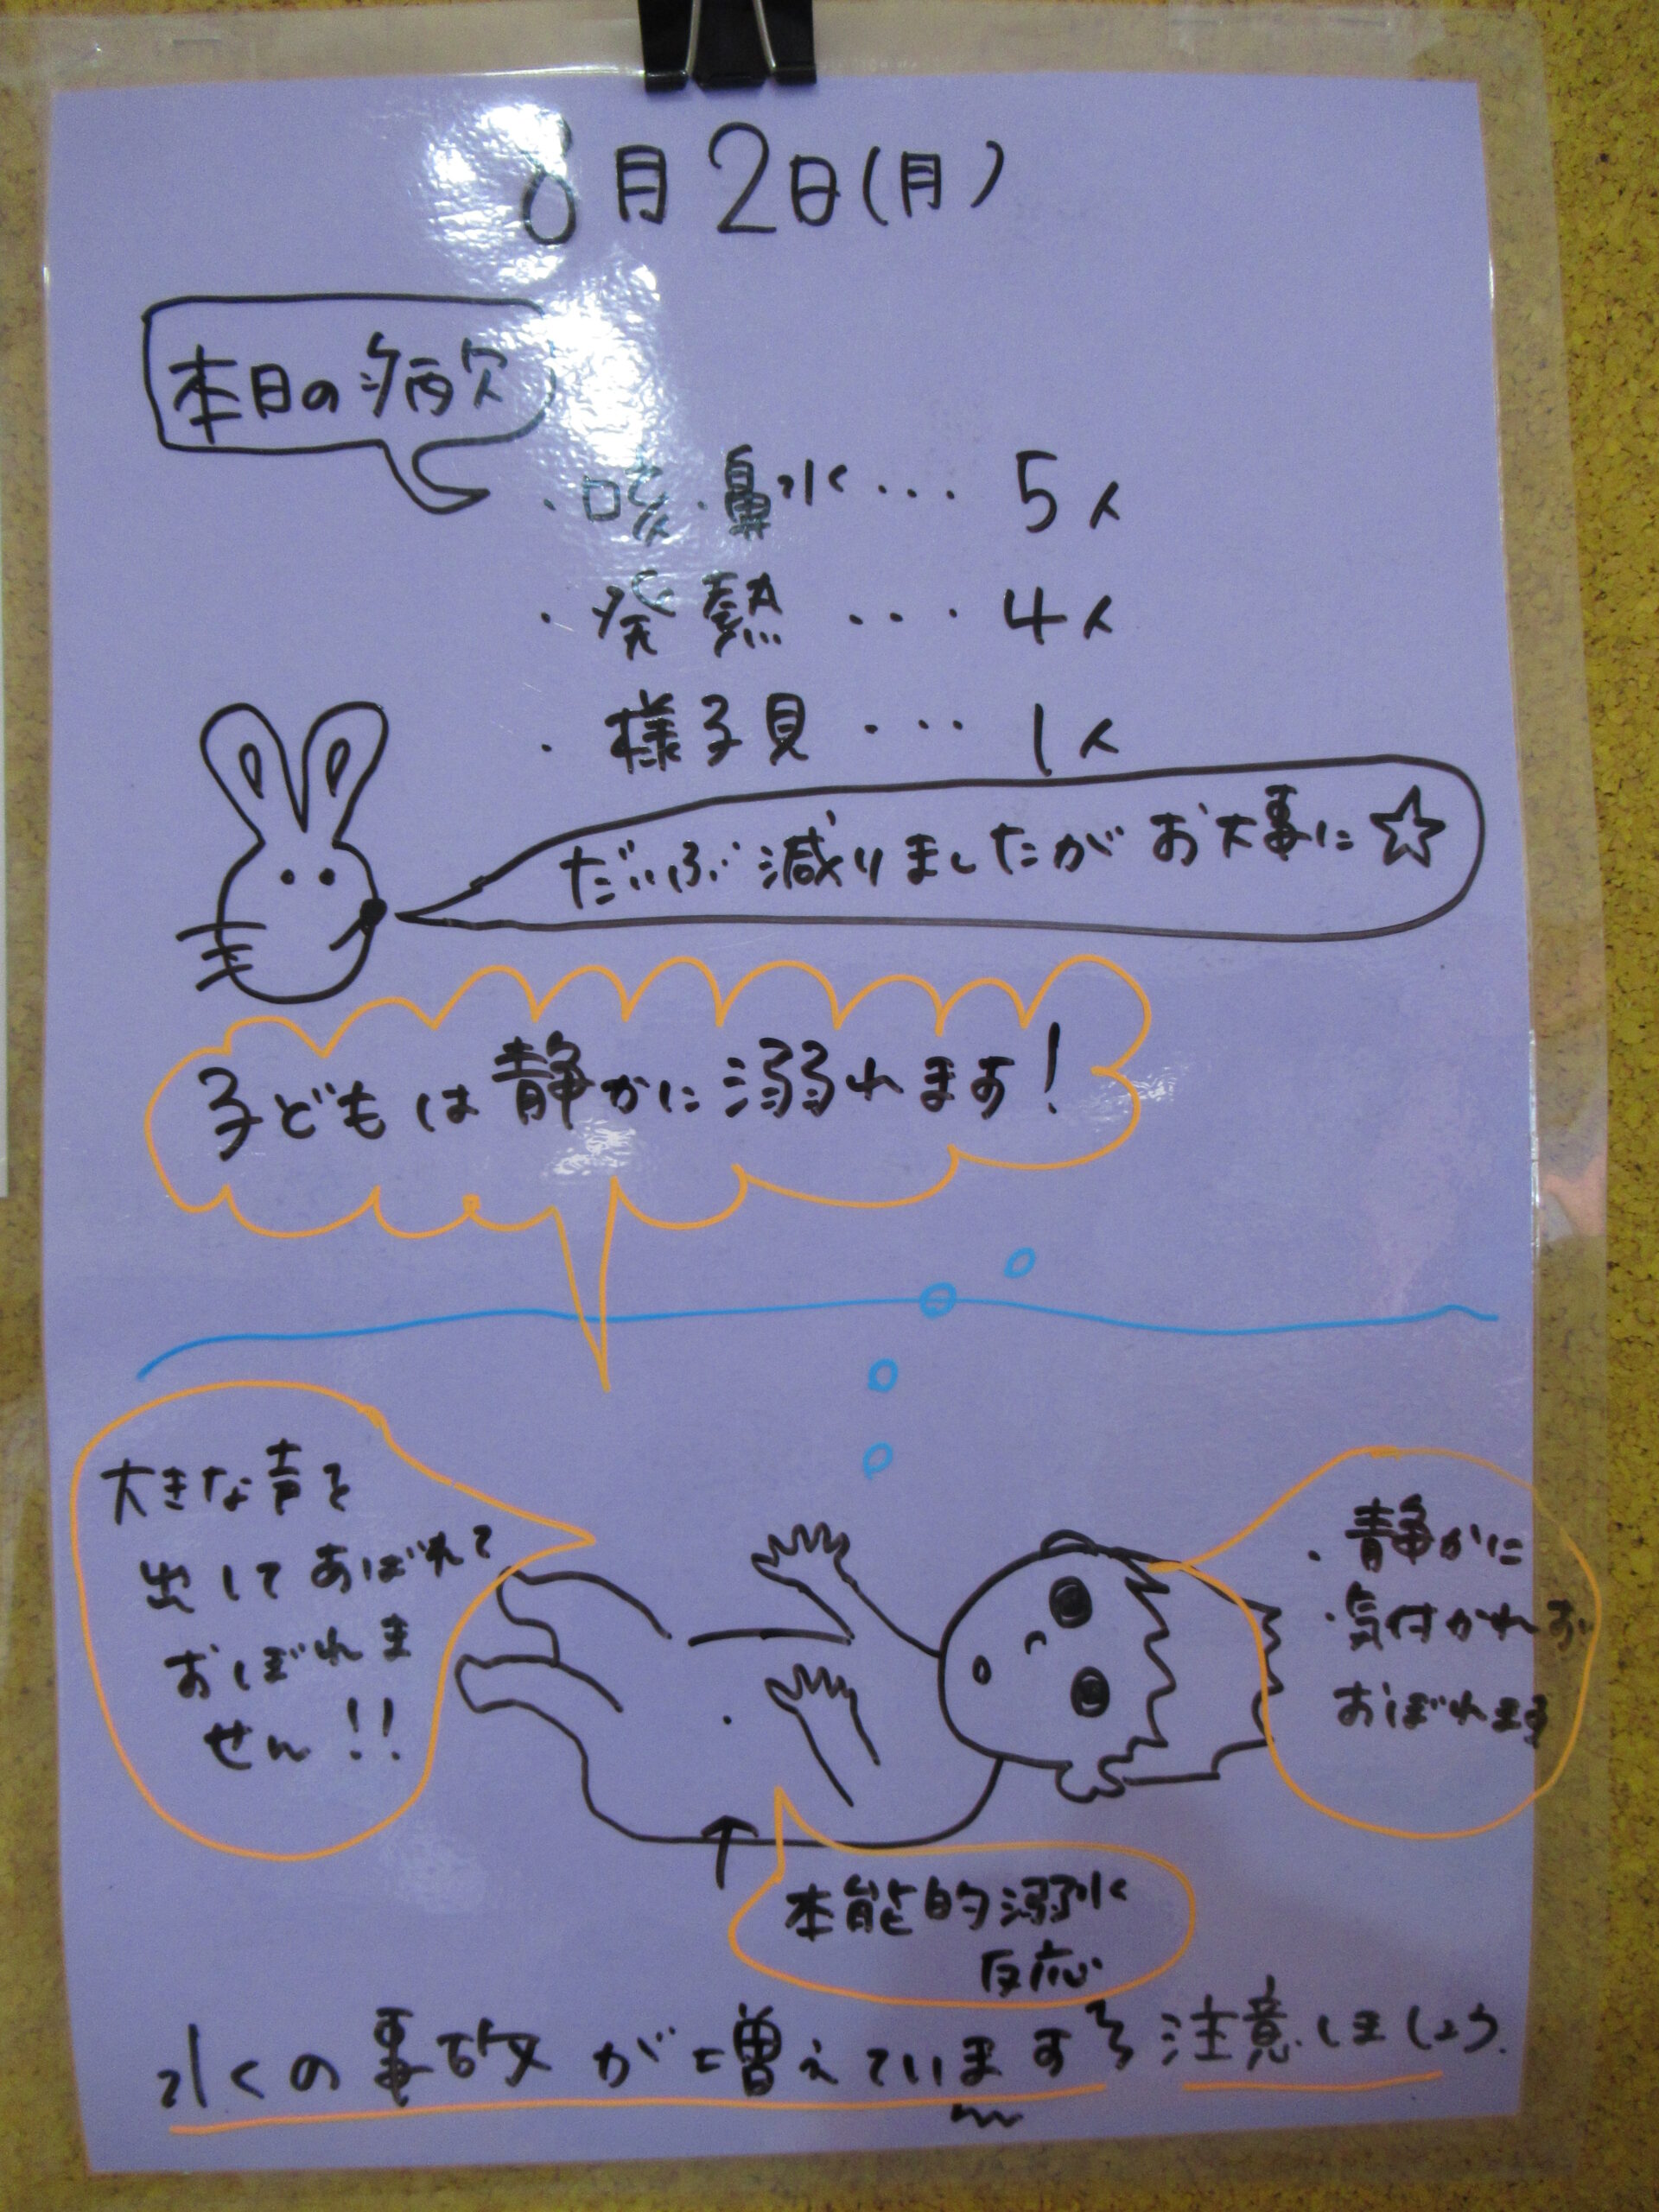 8月2日(月)
本日の病欠
・咳・鼻水・・・5人
・発熱・・・4人
・様子見・・・1人
だいぶ減りましたがお大事に☆
子どもは静かに溺れます!
大きな声を
出してあばれて
おぼれま
せん!!
・静かに
・気付かれず
おぼれます
本能的溺水
反応
水の事故が増えています 注意しましょう.